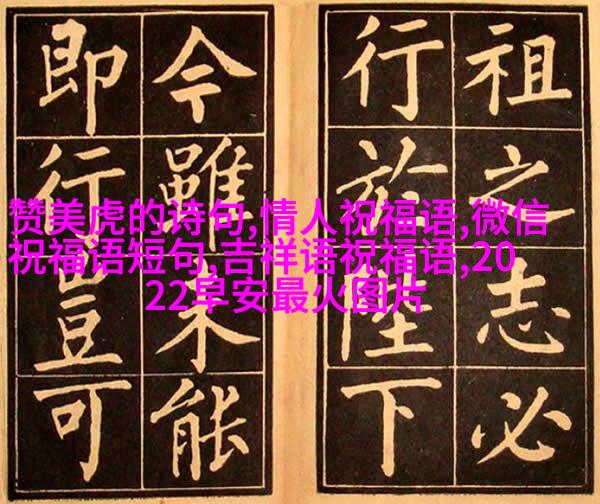 祖之志必
行於陛下
今雖未能
即行豈可
赞美虎的诗句,情人祝福语,微信
祝福语短句,吉祥语祝福语,20
22早安最火图片